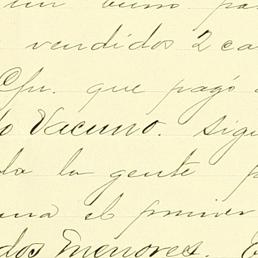 un buno pa
vendidos 2 ca
Cfn. que pagó
o Vacuno. Sigu
da la gente p
una el primer
dos Menores. E